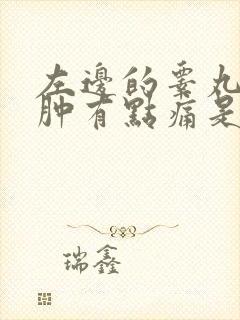 左邊的睪丸
肿有點痛是
瑞鑫